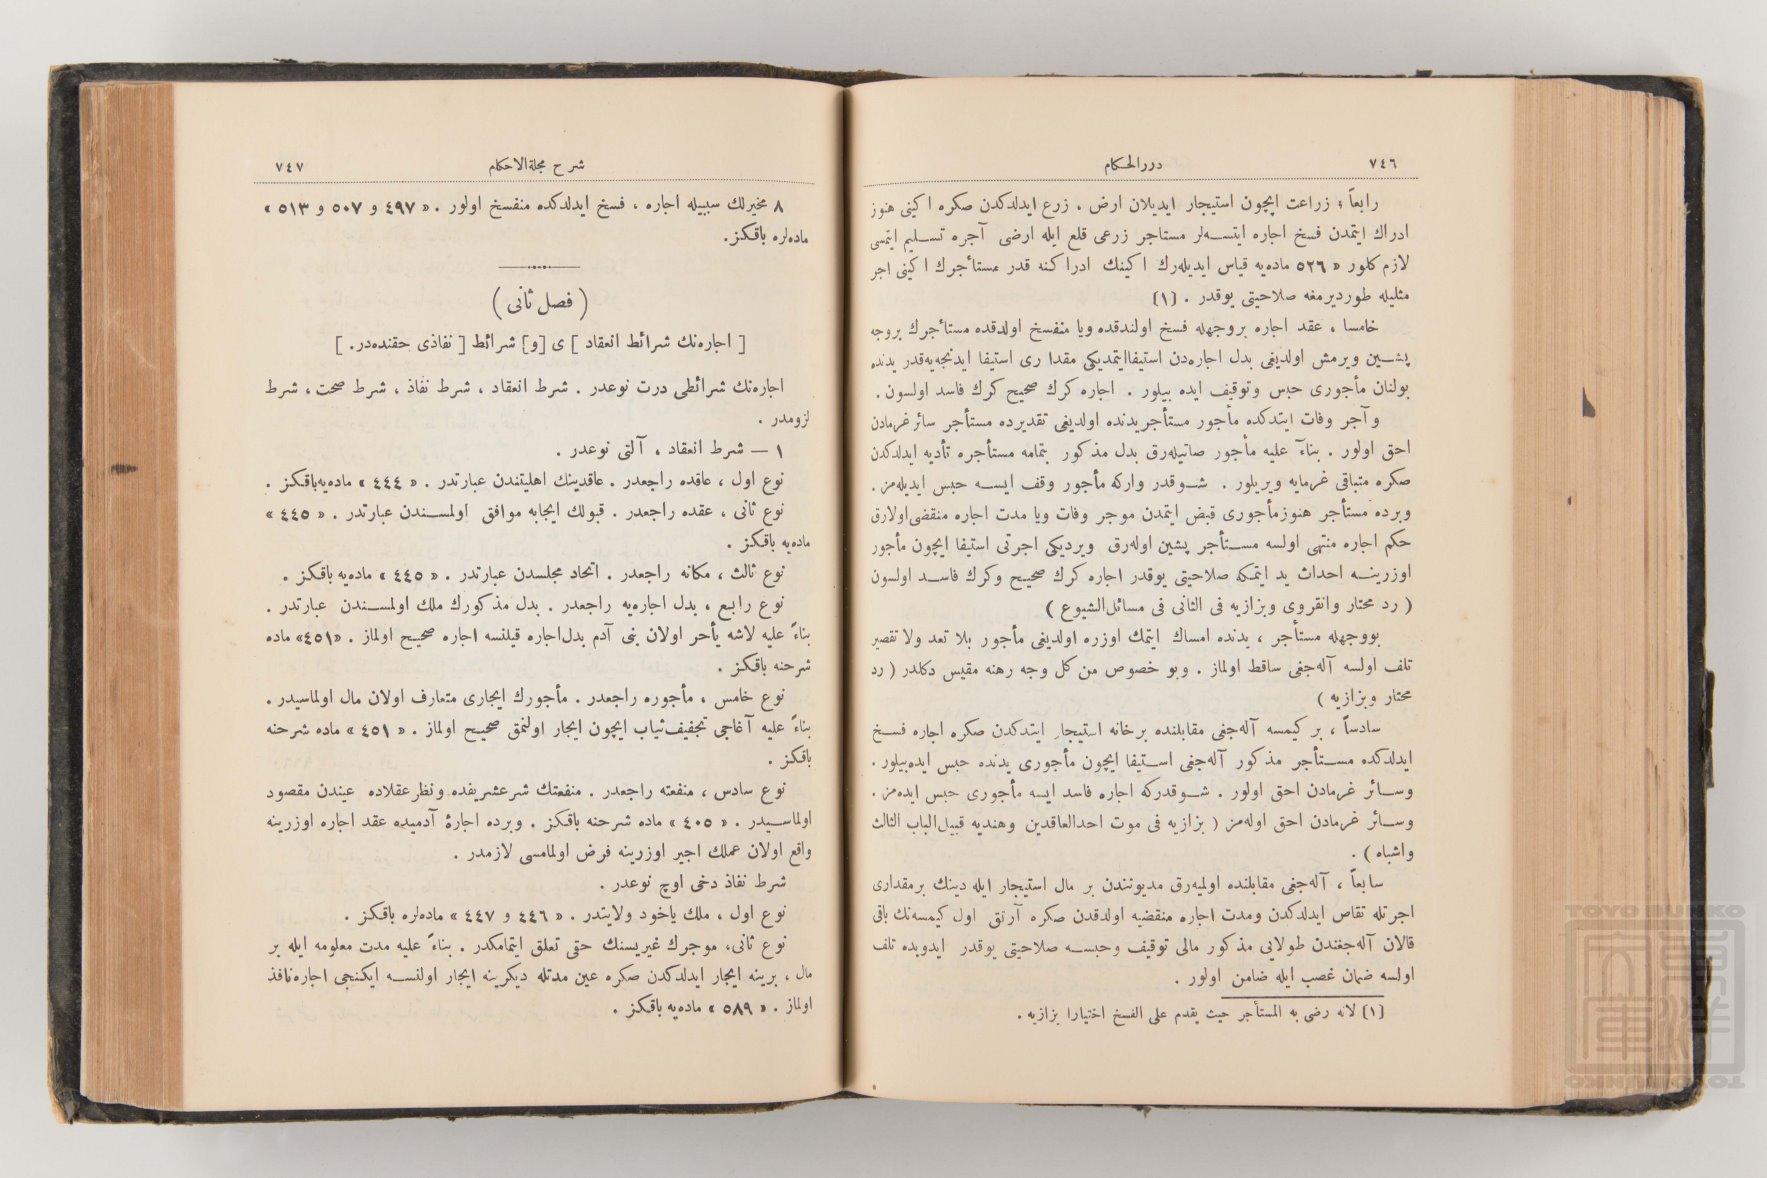 ٧٤٦
دررالحكام
رابعاً ؛ زراعت ايچون استيجار ايديلان ارض ، زرع ايدلدكدن صكره اكينى هنوز
ادراك ايتمدن فسخ اجاره ايتسه‌لر مستاجر زرعى قلع ايله ارضى آجره تسليم ايتمسى
لازم كلور « ٥٢٦ ماده‌يه قياس ايديله‌رك اكينك ادراكنه قدر مستأجرك اكينى اجر
مثليله طورديرمغه صلاحيتى يوقدر . (١)
خامسا ، عقد اجاره بروجهله فسخ اولندقده ويا منفسخ اولدقده مستأجرك بروجه
پشين ويرمش اولديغى بدل اجاره‌دن استيفاايتمديكى مقدارى استيفا ايدنجه‌يه‌قدر يدنده
بولنان مأجورى حبس وتوقيف ايده بيلور . اجاره كرك صحيح كرك فاسد اولسون .
و آجر وفات ايتدكده مأجور مستأجريدنده اولديغى تقديرده مستأجر سائر غرمادن
احق اولور . بناءً عليه مأجور صاتيله‌رق بدل مذكور بتمامه مستأجره تأديه ايدلدكدن
صكره متباقى غرمايه ويريلور . شوقدر واركه مأجور وقف ايسه حبس ايديله‌مز .
وبرده مستأجر هنوزمأجورى قبض ايتمدن موجر وفات ويا مدت اجاره منقضى‌اولارق
حكم اجاره منتهى اولسه مستأجر پشين اوله‌رق ويرديكى اجرتى استيفا ايچون مأجور
اوزرينه احداث يد ايتمكه صلاحيتى يوقدر اجاره كرك صحيح وكرك فاسد اولسون
( رد محتار وانقروى وبزازيه فى الثانى فى مسائل‌الشيوع )
بووجهله مستأجر ، يدنده امساك ايتمك اوزره اولديغى مأجور بلا تعد ولا تقصير
تلف اولسه آله‌جغى ساقط اولماز . وبو خصوص من كل وجه رهنه مقيس دكلدر ( رد
محتار وبزازيه )
سادساً ، بر كيمسه آله‌جغى مقابلنده برخانه استيجار ايتدكدن صكره اجاره فسخ
ايدلدكده مستأجر مذكور آله‌جغى استيفا ايچون مأجورى يدنده حبس ايده‌بيلور .
وسائر غرمادن احق اولور . شوقدركه اجاره فاسد ايسه مأجورى حبس ايده‌مز .
وسائر غرمادن احق اوله‌مز ( بزازيه فى موت احدالعاقدين وهنديه قبيل‌الباب الثالث
واشباه ) .
سابعاً ، آله‌جغى مقابلنده اولميه‌رق مديونندن بر مال استيجار ايله دينك برمقدارى
اجرتله تقاص ايدلدكدن ومدت اجاره منقضيه اولدقدن صكره آرتق اول كيمسه‌نك باقى
قالان آله‌جغندن طولايى مذكور مالى توقيف وحبسه صلاحيتى يوقدر ايدوبده تلف
اولسه ضمان غصب ايله ضامن اولور .
(١) لانه رضى به المستأجر حيث يقدم على الفسخ اختيارا بزازيه .
شرح مجلةالاحكام
٧٤٧
٨ مخيرلك سببيله اجاره ، فسخ ايدلدكده منفسخ اولور . « ٤٩٧ و ٥٠٧ و ٥١٣ »
ماده‌لره باقكز.
( فصل ثانى )
[ اجاره‌نك شرائط انعقاد ] ى [و] شرائط [ نفاذى حقنده‌در. ]
اجاره‌نك شرائطى درت نوعدر . شرط انعقاد ، شرط نفاذ ، شرط صحت ، شرط
لزومدر .
١ — شرط انعقاد ، آلتى نوعدر .
نوع اول ، عاقده راجعدر . عاقدينك اهليتندن عبارتدر . « ٤٤٤ » ماده‌يه‌باقكز .
نوع ثانى ، عقده راجعدر . قبولك ايجابه موافق اولمسندن عبارتدر . « ٤٤٥ »
ماده‌يه باقكز .
نوع ثالث ، مكانه راجعدر . اتحاد مجلسدن عبارتدر . « ٤٤٥ » ماده‌يه باقكز .
نوع رابع ، بدل اجاره‌يه راجعدر . بدل مذكورك ملك اولمسندن عبارتدر .
بناءً عليه لاشه يأحر اولان بنى آدم بدل‌اجاره قيلنسه اجاره صحيح اولماز . «٤٥١» ماده
شرحنه باقكز .
نوع خامس ، مأجوره راجعدر . مأجورك ايجارى متعارف اولان مال اولماسيدر .
بناءً عليه آغاجى تجفيف‌ثياب ايچون ايجار اولنمق صحيح اولماز . « ٤٥١ » ماده شرحنه
باقكز .
نوع سادس ، منفعته راجعدر . منفعتك شرع‌شريفده ونظرعقلاده عيندن مقصود
اولماسيدر . « ٤٠٥ » ماده شرحنه باقكز . وبرده اجارهٔ آدميده عقد اجاره اوزرينه
واقع اولان عملك اجير اوزرينه فرض اولمامسى لازمدر .
شرط نفاذ دخى اوچ نوعدر .
نوع اول ، ملك ياخود ولايتدر . « ٤٤٦ و ٤٤٧ » ماده‌لره باقكز .
نوع ثانى، موجرك غيريسنك حقى تعلق ايتمامكدر . بناءً عليه مدت معلومه ايله بر
مال ، برينه ايجار ايدلدكدن صكره عين مدتله ديكرينه ايجار اولنسه ايكنجى اجاره‌نافذ
اولماز . « ٥٨٩ » ماده‌يه باقكز .
TOYO BUNKO